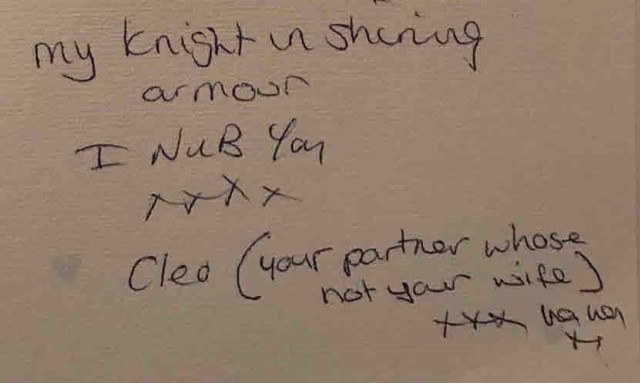 my knight in shining
armour
I NuB You
xxxx
Cleo (your partner whose
not your wife)
xxx ha ha
xx